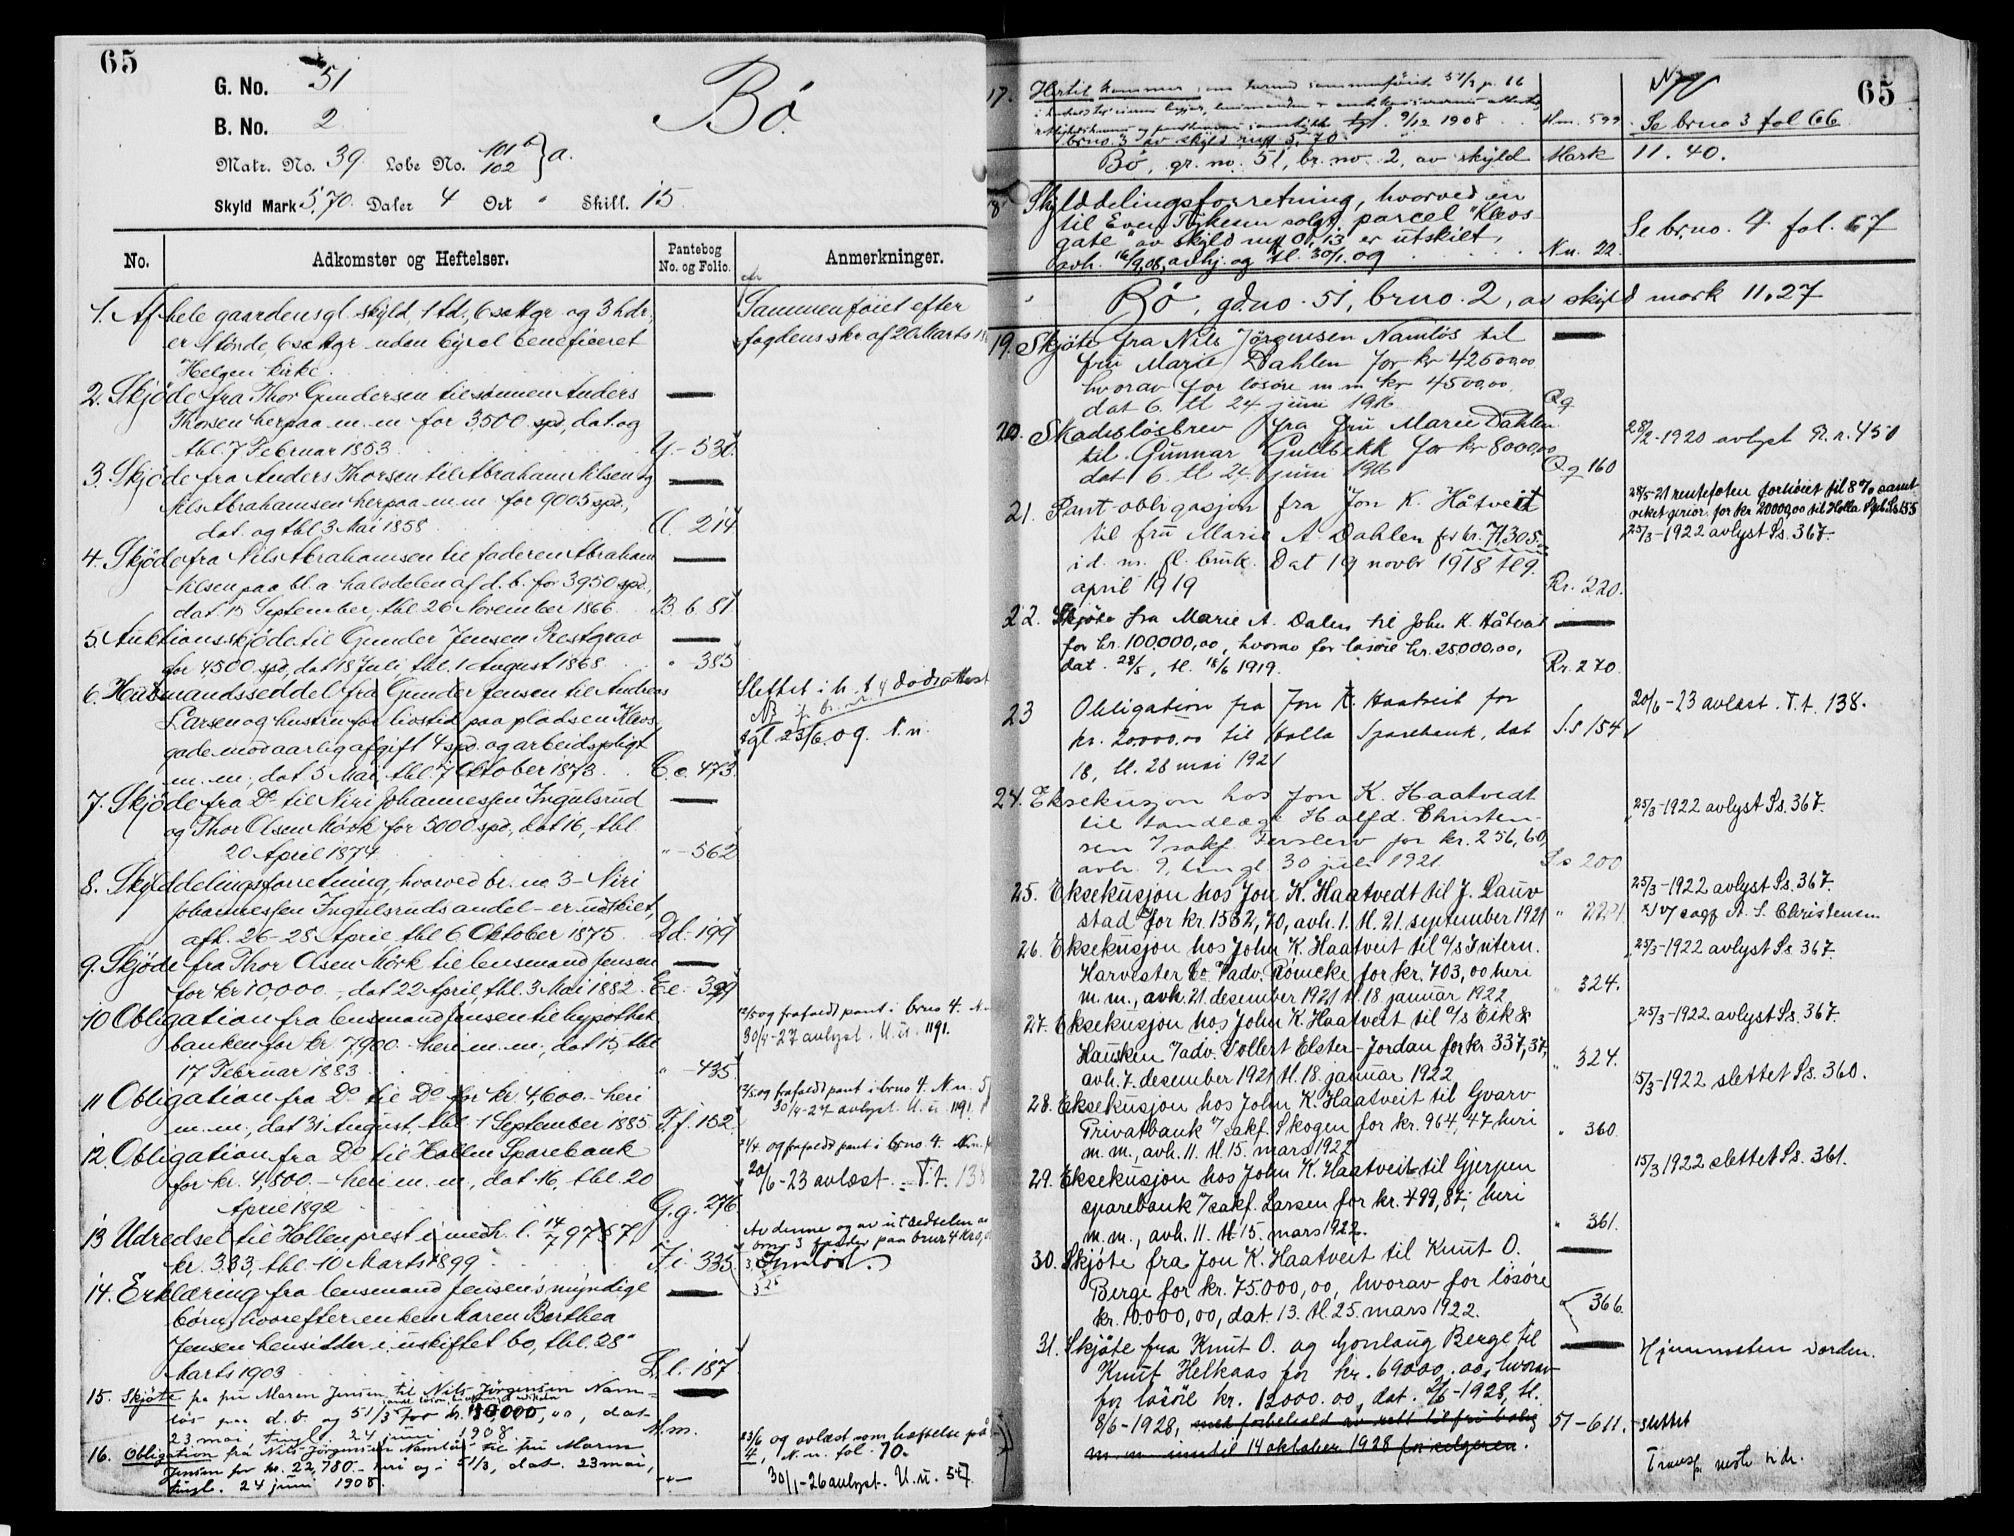 65
G. No. 51
B. No. 2
Bö.
Matr. No. 39. Løbe No. 101 b 102 } a.
Skyld Mark 5,70. Daler 4 Ort " Skill. 15.
No. Adkomster og Heftelser. Pantebog No. og Folio. Anmerkninger.
1. Af hele gaarden sgl. skyld 1 td., 6 settgr og 3 hdr,
er 1 tønde, 6 settgr uden bÿxel beneficeret
Helgen kirke.
Sammenføiet efter
fogdens skr af 20 Marts 18
2. Skjøde fra Thor Gundersen til sønnen Anders
Thorsen herpaa m. m for 3,500 spd, dat. og
tbl. 7 Februar 1853 Y - 530.
3. Skjøde fra Anders Thorsen til Abraham Nilsen og
Nils Abrahamsen herpaa m.m for 9005 spd.,
dat. og tbl. 3 Mai 1858 A - 214
4. Skjøde fra Nils Abrahamsen til faderen Abraham
Nilsen paa bl. a halvdelen af d. b. for 3950 spd.,
dat. 15 September, tbl. 26 November 1866. B b. 81
5. Auktionsskjøde til Gunder Jensen Prestgrav
for 4500 spd, dat 18 Juli, tbl. 1 August 1868 " 385
6. Husmandsseddel fra Gunder Jensen til Andreas
Larsen og hustru for livstid paa pladsen Kleos-
gade mod aarlig afgift 4 spd. og arbeidspligt
m. m; dat. 5 Mai, tbl. 7 Oktober 1873. C. c. 473.
Slettet i h. t. dødsattest
tgl 23/6 09. N.n.
7. Skjøde fra Do til Niri Johannessen Ingulsrud
og Thor Olsen Mørk for 5000 spd, dat 16, tbl
20 April 1874 " - 562
8. Skylddelingsforretning, hvorved br. no 3 - Niri
Johannessen Ingulsruds andel - er udskilt,
afh. 26-28 April, tbl 6 Oktober 1875. D d. 199
9. Skjøde fra Thor Olsen Mørk til lensmand Jensen
for kr 10,000. -, dat 22 April, tbl. 3 Mai 1882. E. e. 399
10 Obligation fra lensmand Jensen til hypothek
banken for kr 7,900. - heri m. m., dat 15, tbl
17 Februar 1883. " - 435
12/5 09 frafaldt pant i brno 4. N.
30/4 - 27 avlyst. U. u. 1191.
11 Obligation fra Do til Do for kr. 4,600. - heri
m. m., dat 31 August, tbl. 1 September 1885. F. f. 152.
12/5 09 frafaldt pant i brno 4. N n. 5
30/4 - 27 avlyst. U. u. 1191
12. Obligation fra Do til Hollen Sparebank
for kr. 4,800. - heri m. m, dat 16, tbl. 20
April 1892 G. g. 276
21/4 09 frafaldt pant i brno 4. N. n.
20/6 - 23 avlæst. - T. t. 138
13 Udredsel til Hollen prest i medh. l. 14/7 97 § 7,
kr. 3.33, tbl. 10 Marts 1899 I i 335
Av denne og av utredselen av
brno 3 hæfter paa brnr 4 kr 0,
14. Erklæring fra lensmand Jensens myndige
børn, hvorefter enken Maren Berthea
Jensen hensidder i uskiftet bo, tbl. 28
Marts 1903 L. l. 187
15. Skjøte fra fru Maren Jensen til Nils Jörgensen Nam-
løs paa d. b. og 51/3 for kr. 30,000,00, dat
23 mai, tingl. 24 juni 1908 M. m.
16. Obligation fra Nils Jörgensen Namløs til fru Maren
Jensen for kr. 22,780. - heri og i 51/3, dat. 23 mai,
tingl. 24 juni 1908. - " -
23/6 09 avlæst som heftelse på
4, N. n. fol. 70.
30/1 - 26 avlyst. U. u. 547.
65
17. Hertil kommer som hermed sammenføiet 51/3 p. 66
tgl. 9/12 1908 M m. 599
brno. 3 av skyld mk 5,70.
Se brno 3 fol 66
Bö, gr. no. 51, br. no. 2, av skyld Mark 11.40.
18 Skylddelingsforretning, hvorved en
til Even Tykesen solgt parcel "Kleos-
gate" av skyld mk 0,13 er utskilt,
avh. 16/9 08, avhj. og tl. 30/1. 09 N n. 22.
Se br.no. 4 fol. 67
Bö, gd.no. 51, br.no. 2, av skyld mark 11,27
19. Skjöte fra Nils Jörgensen Namlös til
fru Marie Dahlen for kr 42500,00
hvorav for lösöre m m kr 4500,00.
dat 6. tl 24 juni 1916 Q q
20. Skadeslösbrev fra Fru Marie Dahlen
til Gunnar Gullbekk for kr 8000,00
dat 6. tl 24 juni 1916 Q q 160
28/2 - 1920 avlyst R. r. 450
21. Pantobligasjon fra Jon K. Håtveit
til fru Marie A. Dahlen for kr. 71,305.
i d. m. fl. bruk. Dat 19 novbr 1918 tl 9.
april 1919 Rr. 220.
28/5 - 21 rentefoten forhöiet til 8% samt
veket prior. for kr 20000,00 til Holla Spb. Ss 155
25/3 - 1922 avlyst Ss. 367.
22. Skjöte fra Marie A. Dalen til John K. Håtveit
for kr. 100,000,00, hvorav for lösöre kr. 25000,00,
dat. 28/5, tl. 18/6 1919. Rr. 270.
23 Obligation fra Jon K. Haatveit for
kr. 20000,00 til Holla Sparebank, dat
18, tl. 28 mai 1921 S.s 154
20/6 - 23 avlæst. T. t. 138.
24. Eksekusjon hos Jon K. Haatvedt
til tandlæge Halfd. Christen-
sen v/sakf. Ferslew for kr. 256,60,
avh. 9, tingl 30 juli 1921 S s 200
25/3 - 1922 avlyst Ss. 367.
25. Eksekusjon hos Jon K. Haatvedt til J. Rauv
stad for kr. 1532,70, avh. 1. tl. 21. september 1921 " 227.
25/3 - 1922 avlyst Ss. 367.
v/ sagf A. S. Christensen
26. Eksekusjon hos John K. Haatveit til a/s Intern.
Harvester Co. v/adv. Römcke for kr. 703,00 heri
m. m., avh. 21. desember 1921 tl. 18. januar 1922 " 324.
25/3 - 1922 avlyst Ss. 367.
27. Eksekusjon hos John K. Haatveit til a/s Eik &
Hausken v/adv. Vollert Elster-Jordan for kr. 337,37,
avh. 7. desember 1921 tl. 18. januar 1922. " 324.
25/3 - 1922 avlyst Ss. 367.
28. Eksekusjon hos John K. Haatveit til Gvarv
Privatbank v/sakf. Skogen for kr. 964,47 heri
m. m., avh. 11. tl. 15. mars 1922 " 360.
15/3 - 1922 slettet Ss. 360.
29. Eksekusjon hos John K. Haatveit til Gjerpen
sparebank v/sakf. Larsen for kr. 499,87, heri
m. m., avh. 11. tl 15. mars 1922. " 361.
15/3 1922 slettet Ss. 361.
30. Skjöte fra Jon K. Haatveit til Knut O.
Berge for kr. 75.000,00, hvorav for lösöre
kr. 10.000,00, dat. 13. tl 25. mars 1922. " 366.
31. Skjöte fra Knut O. og Gonlaug Berge til
Knut Helkaas for kr. 69000.00, hvorav
for lösöre kr. 12000.00, dat. 2/6 - 1928, tl.
8/6 - 1928, med forbehold av rett til fri bolig
m. m inntil 14 oktober 1928 for selgeren. 51 - 611.
Hjemmelen i orden.
slettet